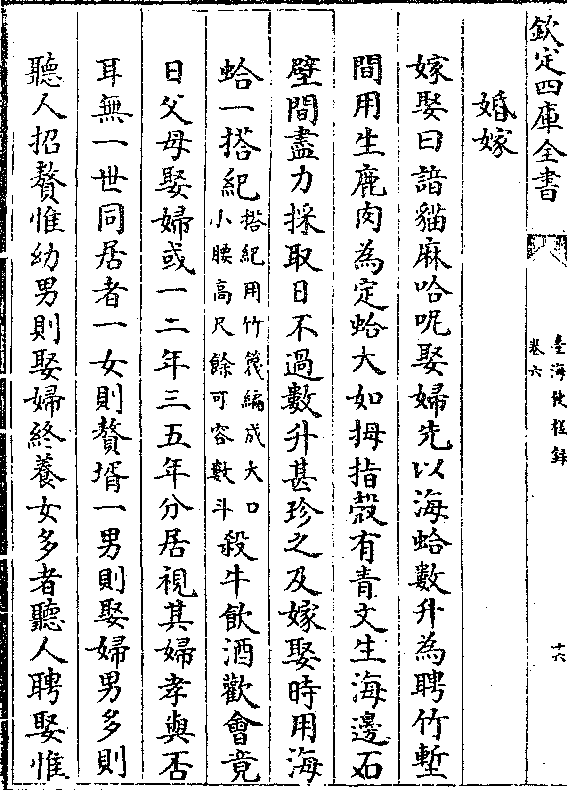 欽定四庫全書
臺海使槎錄
卷六
十六
婚嫁
嫁娶曰諳貓麻哈呢娶婦先以海蛤數升為聘竹塹
間用生鹿肉為定蛤大如拇指殼有青文生海邊石
壁間盡力採取日不過數升甚珍之及嫁娶時用海
蛤一搭紀搭紀用竹篾編成大口小腰高尺餘可容數斗殺牛飲酒歡會竟
日父母娶婦或一二年三五年分居視其婦孝與否
耳無一世同居者一女則贅壻一男則娶婦男多則
聽人招贅惟幼男則娶婦終養女多者聽人聘娶惟